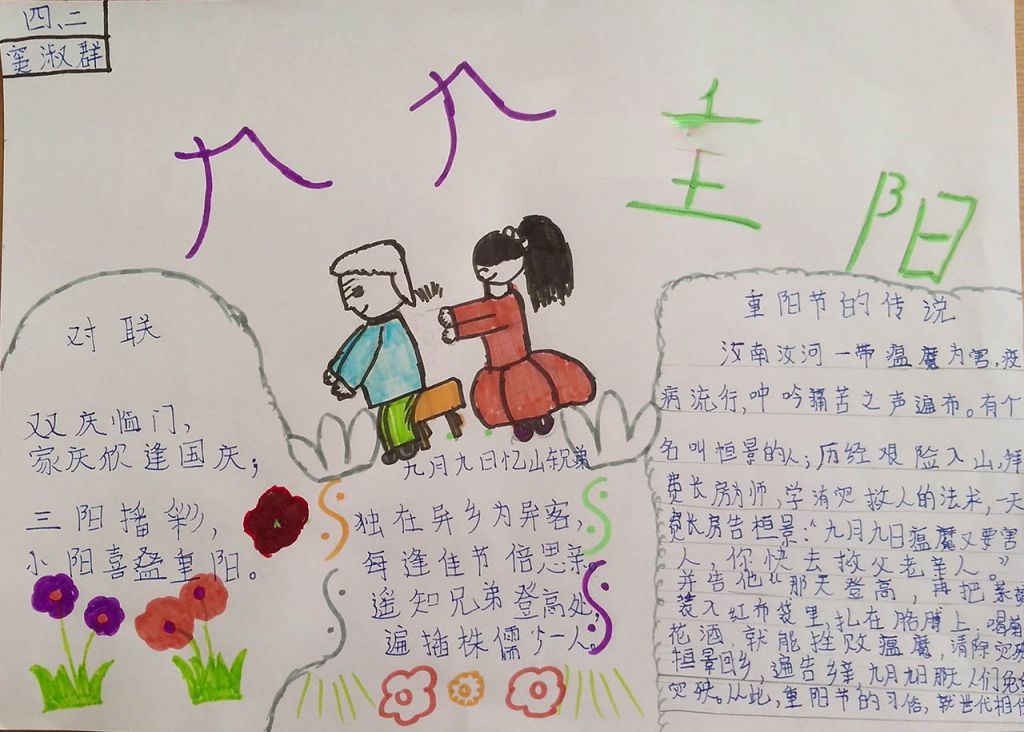 四、二
窦淑群
九九重阳
对联
双庆临门，
家庆欣逢国庆；
三阳播彩，
小阳喜叠重阳。
九月九日忆山东兄弟
独在异乡为异客，
每逢佳节倍思亲
遥知兄弟登高处，
遍插株儒少一人。
重阳节的传说
汝南汝河一带瘟魔为害，疫
病流行，呻吟痛苦之声遍布。有个
名叫恒景的人；历经艰险入山，拜
费长房为师，学消灾救人的法术，一天
费长房告桓景：“九月九日瘟魔又要害
人，你快去救父老亲人。”
并告他“那天登高，再把茱萸
装入红布袋里，扎在胳膊上，喝菊
花酒，就能挫败瘟魔，清除灾殃
桓景回乡，遍告乡亲，九月九日那天人们免
灾殃。从此，重阳节的习俗，就世代相传